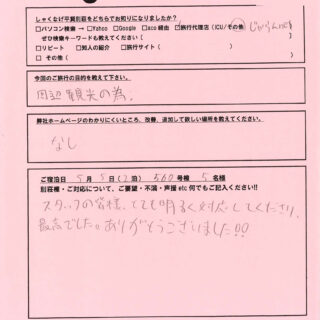 しゃくなげ平貸別荘をどちらでお知りになりましたか?
□パソコン検索 → □Yahoo □Google □aco 経由 ☑旅行代理店(JCU/その他 じゃらんnet
ぜひ検索キーワードも教えてください(
□リピート □知人の紹介 □旅行サイト( )
□その他( )
今回のご旅行の目的を教えて下さい。
周辺観光の為。
弊社ホームページのわかりにくいところ、改善、追加して欲しい場所を教えてください。
なし
ご宿泊日 5月5日(2泊) 560号棟 5名様
別荘棟・ご対応について、ご要望・不満・声援 etc 何でもご記入ください!!
スタッフの皆様、とても明るく対応してくださり、
最高でした。ありがとうございました!!